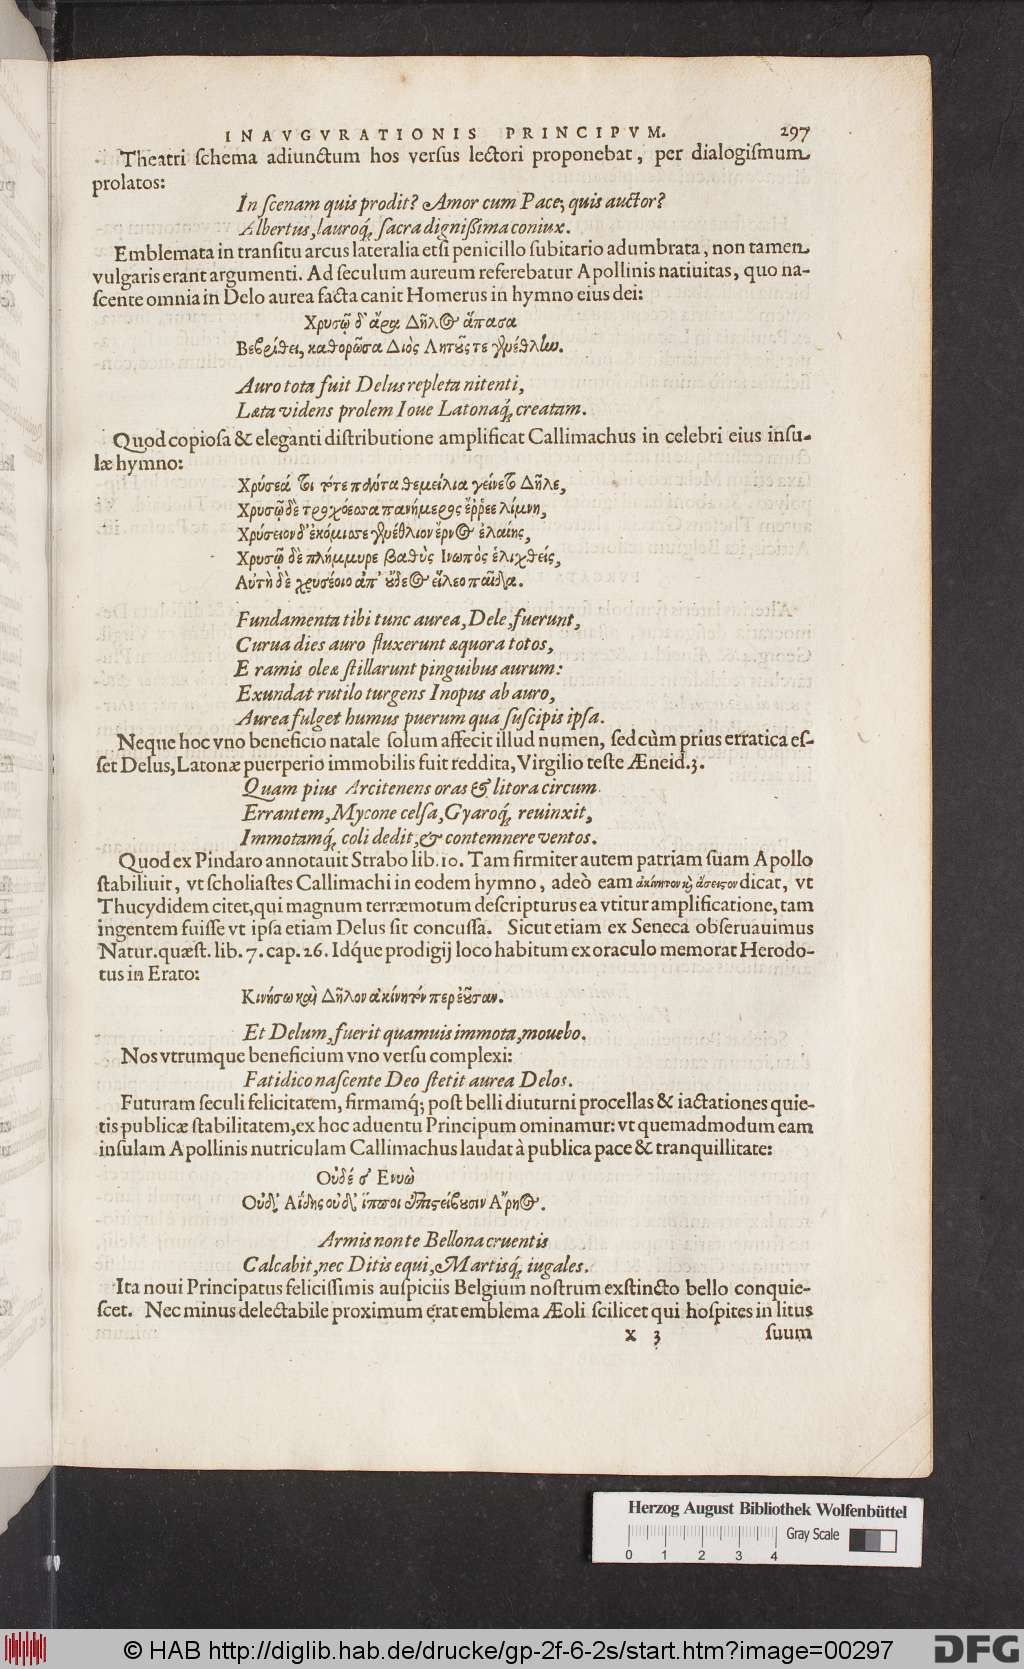 INAVGVRATIONIS PRINCIPVM. 297
Theatri ſchema adiunctum hos verſus lectori proponebat, per dialogiſmum
prolatos:
In ſcenam quis prodit? Amor cum Pace; quis auctor?
Albertus, lauroq́; ſacra digniſſima coniux.
Emblemata in tranſitu arcus lateralia etſi penicillo ſubitario adumbrata, non tamen
vulgaris erant argumenti. Ad ſeculum aureum referebatur Apollinis natiuitas, quo na-
ſcente omnia in Delo aurea facta canit Homerus in hymno eius dei:
Χρυσῷ δ' ἄρα Δῆλος ἅπασα
Βεβρίθει, καθορῶσα Διὸς Λητοῦς τε γενέθλην.
Auro tota fuit Delus repleta nitenti,
Læta videns prolem Ioue Latonaq́; creatam.
Quod copioſa & eleganti diſtributione amplificat Callimachus in celebri eius inſu-
læ hymno:
Χρύσεά τοι τότε πάντα θεμείλια γείνετο Δῆλε,
Χρυσῷ δὲ τροχόεσσα πανήμερος ἔῤῥεε λίμνη,
Χρύσειον δ' ἐκόμισσε γενέθλιον ἔρνος ἐλαίης,
Χρυσῷ δὲ πλήμμυρε βαθὺς Ινωπὸς ἑλιχθείς,
Αὐτὴ δὲ χρυσέοιο ἀπ' οὔδεος εἵλεο παῖδα.
Fundamenta tibi tunc aurea, Dele, fuerunt,
Curua dies auro fluxerunt æquora totos,
E ramis oleæ ſtillarunt pinguibus aurum:
Exundat rutilo turgens Inopus ab auro,
Aurea fulget humus puerum qua ſuſcipis ipſa.
Neque hoc vno beneficio natale ſolum affecit illud numen, ſed cùm prius erratica eſ-
ſet Delus, Latonæ puerperio immobilis fuit reddita, Virgilio teſte Æneid. 3.
Quam pius Arcitenens oras & litora circum
Errantem, Mycone celſa, Gyaroq́; reuinxit,
Immotamq́; coli dedit, & contemnere ventos.
Quod ex Pindaro annotauit Strabo lib. 10. Tam firmiter autem patriam ſuam Apollo
ſtabiliuit, vt ſcholiaſtes Callimachi in eodem hymno, adeò eam ἀκίνητον καὶ ἄσειστον dicat, vt
Thucydidem citet, qui magnum terræmotum deſcripturus ea vtitur amplificatione, tam
ingentem fuiſſe vt ipſa etiam Delus ſit concuſſa. Sicut etiam ex Seneca obſeruauimus
Natur. quæſt. lib. 7. cap. 26. Idq́ue prodigij loco habitum ex oraculo memorat Herodo-
tus in Erato:
Κινήσω καὶ Δῆλον ἀκίνητόν περ ἐοῦσαν.
Et Delum, fuerit quamuis immota, mouebo.
Nos vtrumque beneficium vno verſu complexi:
Fatidico naſcente Deo ſtetit aurea Delos.
Futuram ſeculi felicitatem, firmamq́; poſt belli diuturni procellas & iactationes quie-
tis publicæ ſtabilitatem, ex hoc aduentu Principum ominamur: vt quemadmodum eam
inſulam Apollinis nutriculam Callimachus laudat à publica pace & tranquillitate:
Οὐδέ σ' Ενυὼ
Οὐδ' Αἴδης οὐδ' ἵπποι ἐπιστείβουσιν Αρηος.
Armis non te Bellona cruentis
Calcabit, nec Ditis equi, Martisq́; iugales.
Ita noui Principatus feliciſſimis auſpiciis Belgium noſtrum exſtincto bello conquie-
ſcet. Nec minus delectabile proximum erat emblema Æoli ſcilicet qui hoſpites in litus
X 3 ſuum
Herzog August Bibliothek Wolfenbüttel
Gray Scale
0 1 2 3 4
© HAB http://diglib.hab.de/drucke/gp-2f-6-2s/start.htm?image=00297
DFG